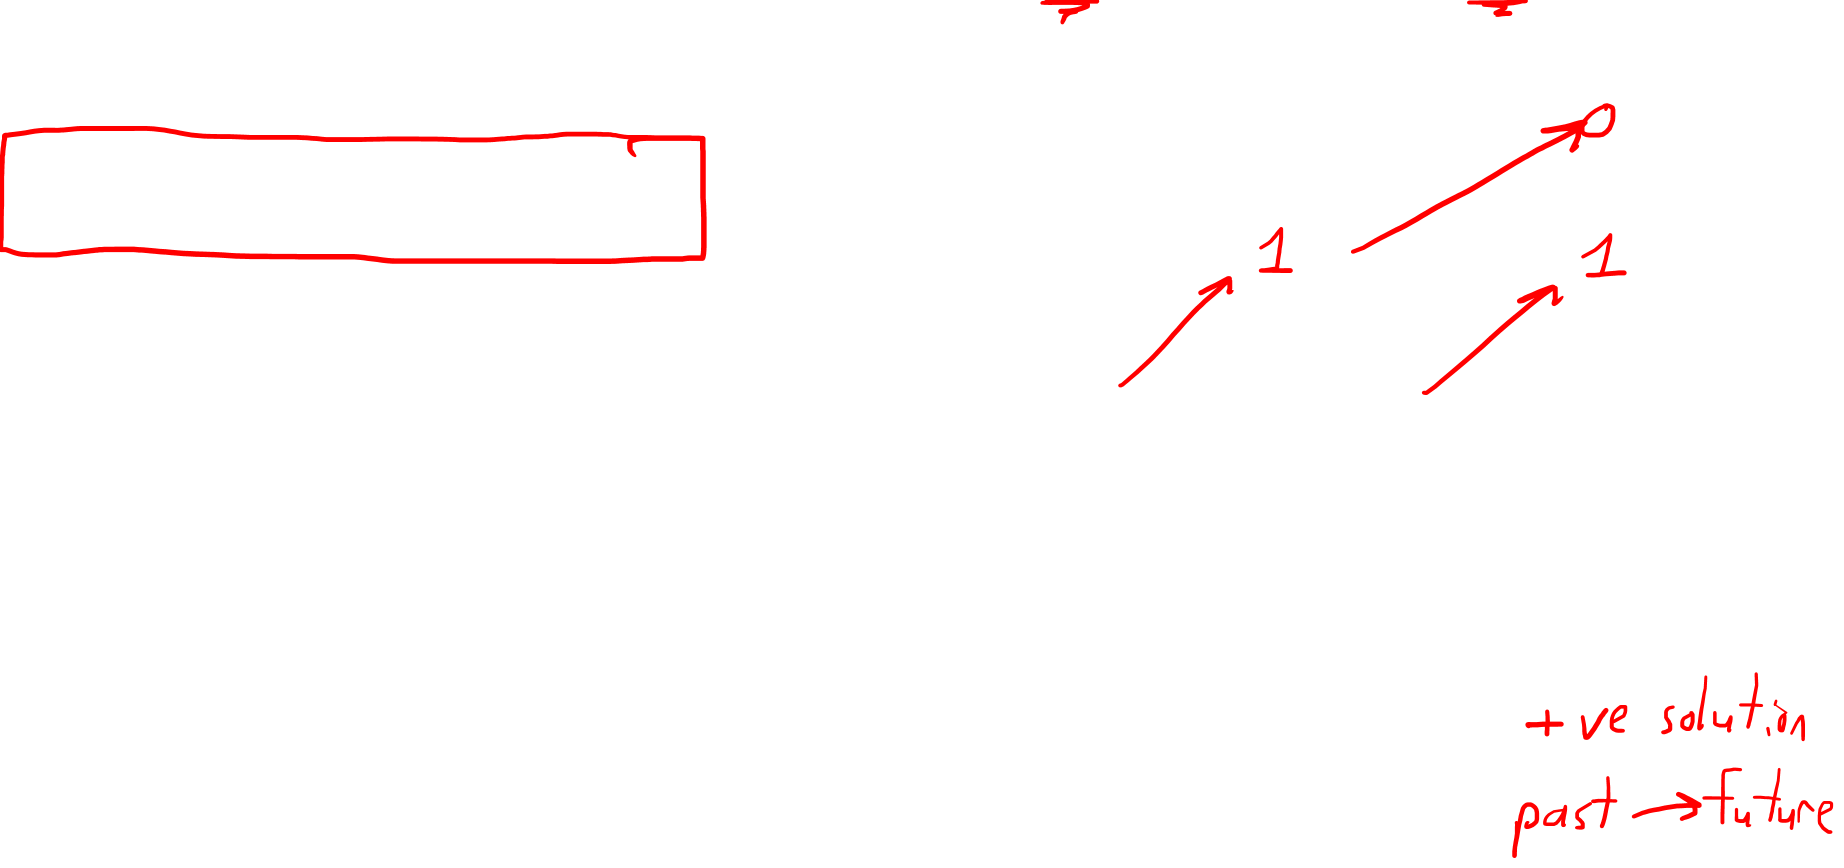 0
1
1
+ve solution
past → future